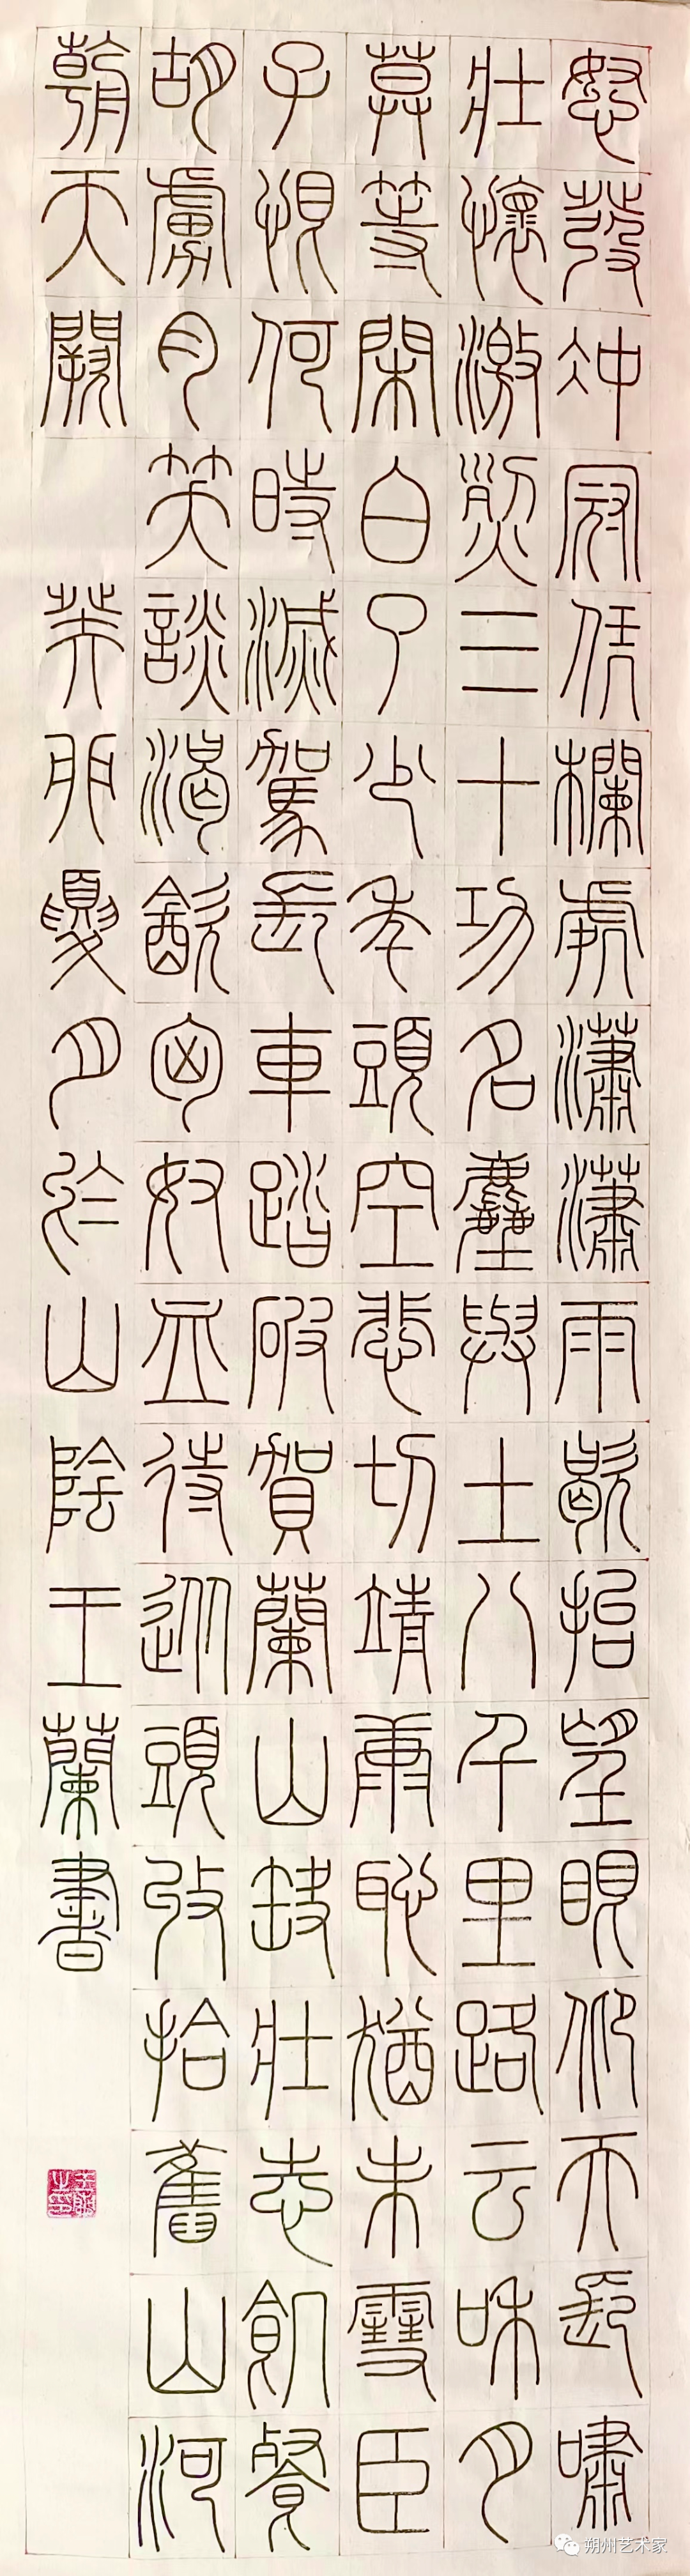 怒發沖冠凭欄處瀟瀟雨歇抬望眼仰天長嘯
壯懷激烈三十功名塵與土八千里路云和月
莫等閑白了少年頭空悲切靖康恥猶未雪臣
子恨何時滅駕長車踏破賀蘭山缺壯志飢餐
胡虜肉笑談渴飲匈奴血待從頭收拾舊山河
朝天闕 癸卯夏月於山陰王蘭書
朔州艺术家